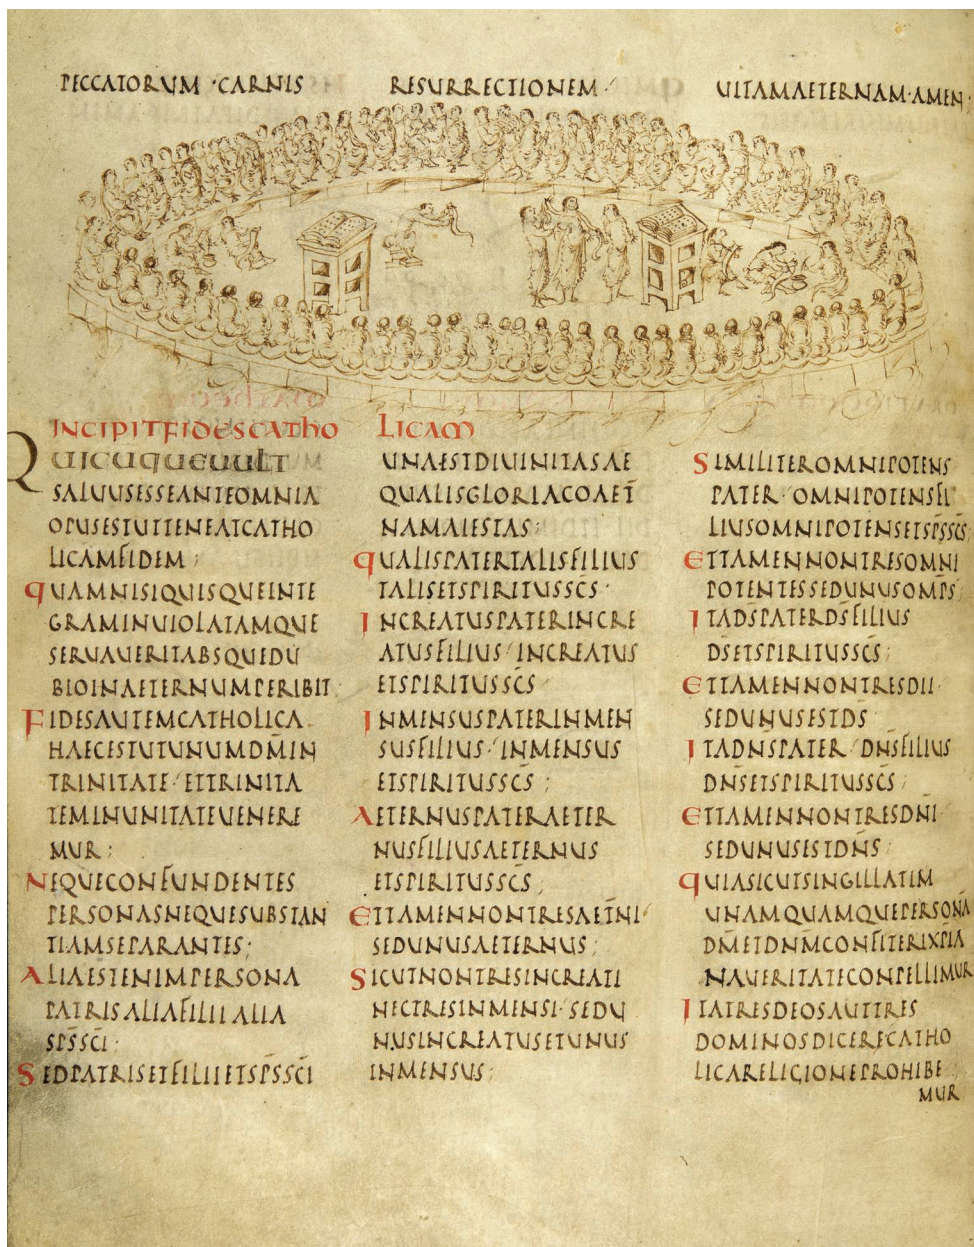 PECCATORUM · CARNIS RESURRECTIONEM · UITAMAETERNAM · AMEN ·
INCIPIT FIDES CATHO LICAM
QUICUQUEUULT
SALUUSESSEANTEOMNIA
OPUSESTUTTENEATCATHO
LICAMFIDEM ;
QUAMNISIQUISQUEINTE
GRAMINUIOLATAMQUE
SERUAUERITABSQUEDU
BIOINAETERNUMPERIBIT
FIDESAUTEMCATHOLICA
HAECESTUTUNUMDM̄IN
TRINITATE · ETTRINITA
TEMINUNITATEUENERE
MUR ;
NEQUECONFUNDENTES
PERSONASNEQUESUBSTAN
TIAMSEPARANTES ;
ALIAESTENIMPERSONA
PATRISALIAFILII ALIA
SP̄SSCĪ :
SEDPATRISETFILIIETSP̄SSCĪ
UNAESTDIUINITASAE
QUALISGLORIACOAET̄
NAMAIESTAS ;
QUALISPATERTALISFILIUS
TALISETSPIRITUSSC̄S ·
INCREATUSPATERINCRE
ATUSFILIUS · INCREATUS
ETSPIRITUSSC̄S ;
INMENSUSPATERINMEN
SUSFILIUS · INMENSUS
ETSPIRITUSSC̄S ;
AETERNUSPATERAETER
NUSFILIUSAETERNUS
ETSPIRITUSSC̄S ;
ETTAMENNONTRESAET̄NI ·
SEDUNUSAETERNUS ;
SICUTNONTRESINCREATI
NECTRESINMENSI · SEDU
NUSINCREATUSETUNUS
INMENSUS ;
SIMILITEROMNIPOTENS
PATER · OMNIPOTENSFI
LIUSOMNIPOTENSETSP̄SSC̄S
ETTAMENNONTRESOMNI
POTENTESSEDUNUSOMP̄S ;
ITADS̄PATERDS̄FILIUS
DS̄ETSPIRITUSSC̄S ;
ETTAMENNONTRESDII
SEDUNUSESTDS̄
ITADN̄SPATER · DN̄SFILIUS
DN̄SETSPIRITUSSC̄S ;
ETTAMENNONTRESDN̄I
SEDUNUSESTDN̄S ;
QUIASICUTSINGILLATIM
UNAMQUAMQUEPERSONA
DM̄ETDN̄MCONFITERIXP̄IA
NAUERITATECONPELLIMUR
ITATRESDEOSAUTTRES
DOMINOSDICERECATHO
LICARELIGIONEPROHIBE
MUR